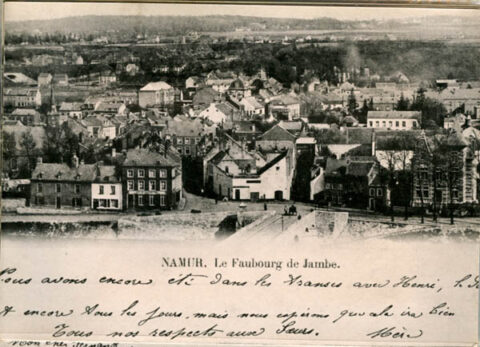 NAMUR. Le Faubourg de Jambe.
Nous avons encore été dans les transes avec Henri, le
et encore tous les jours, mais nous espérons que cela ira bien
Tous nos respects aux Sœurs.
Mon cher